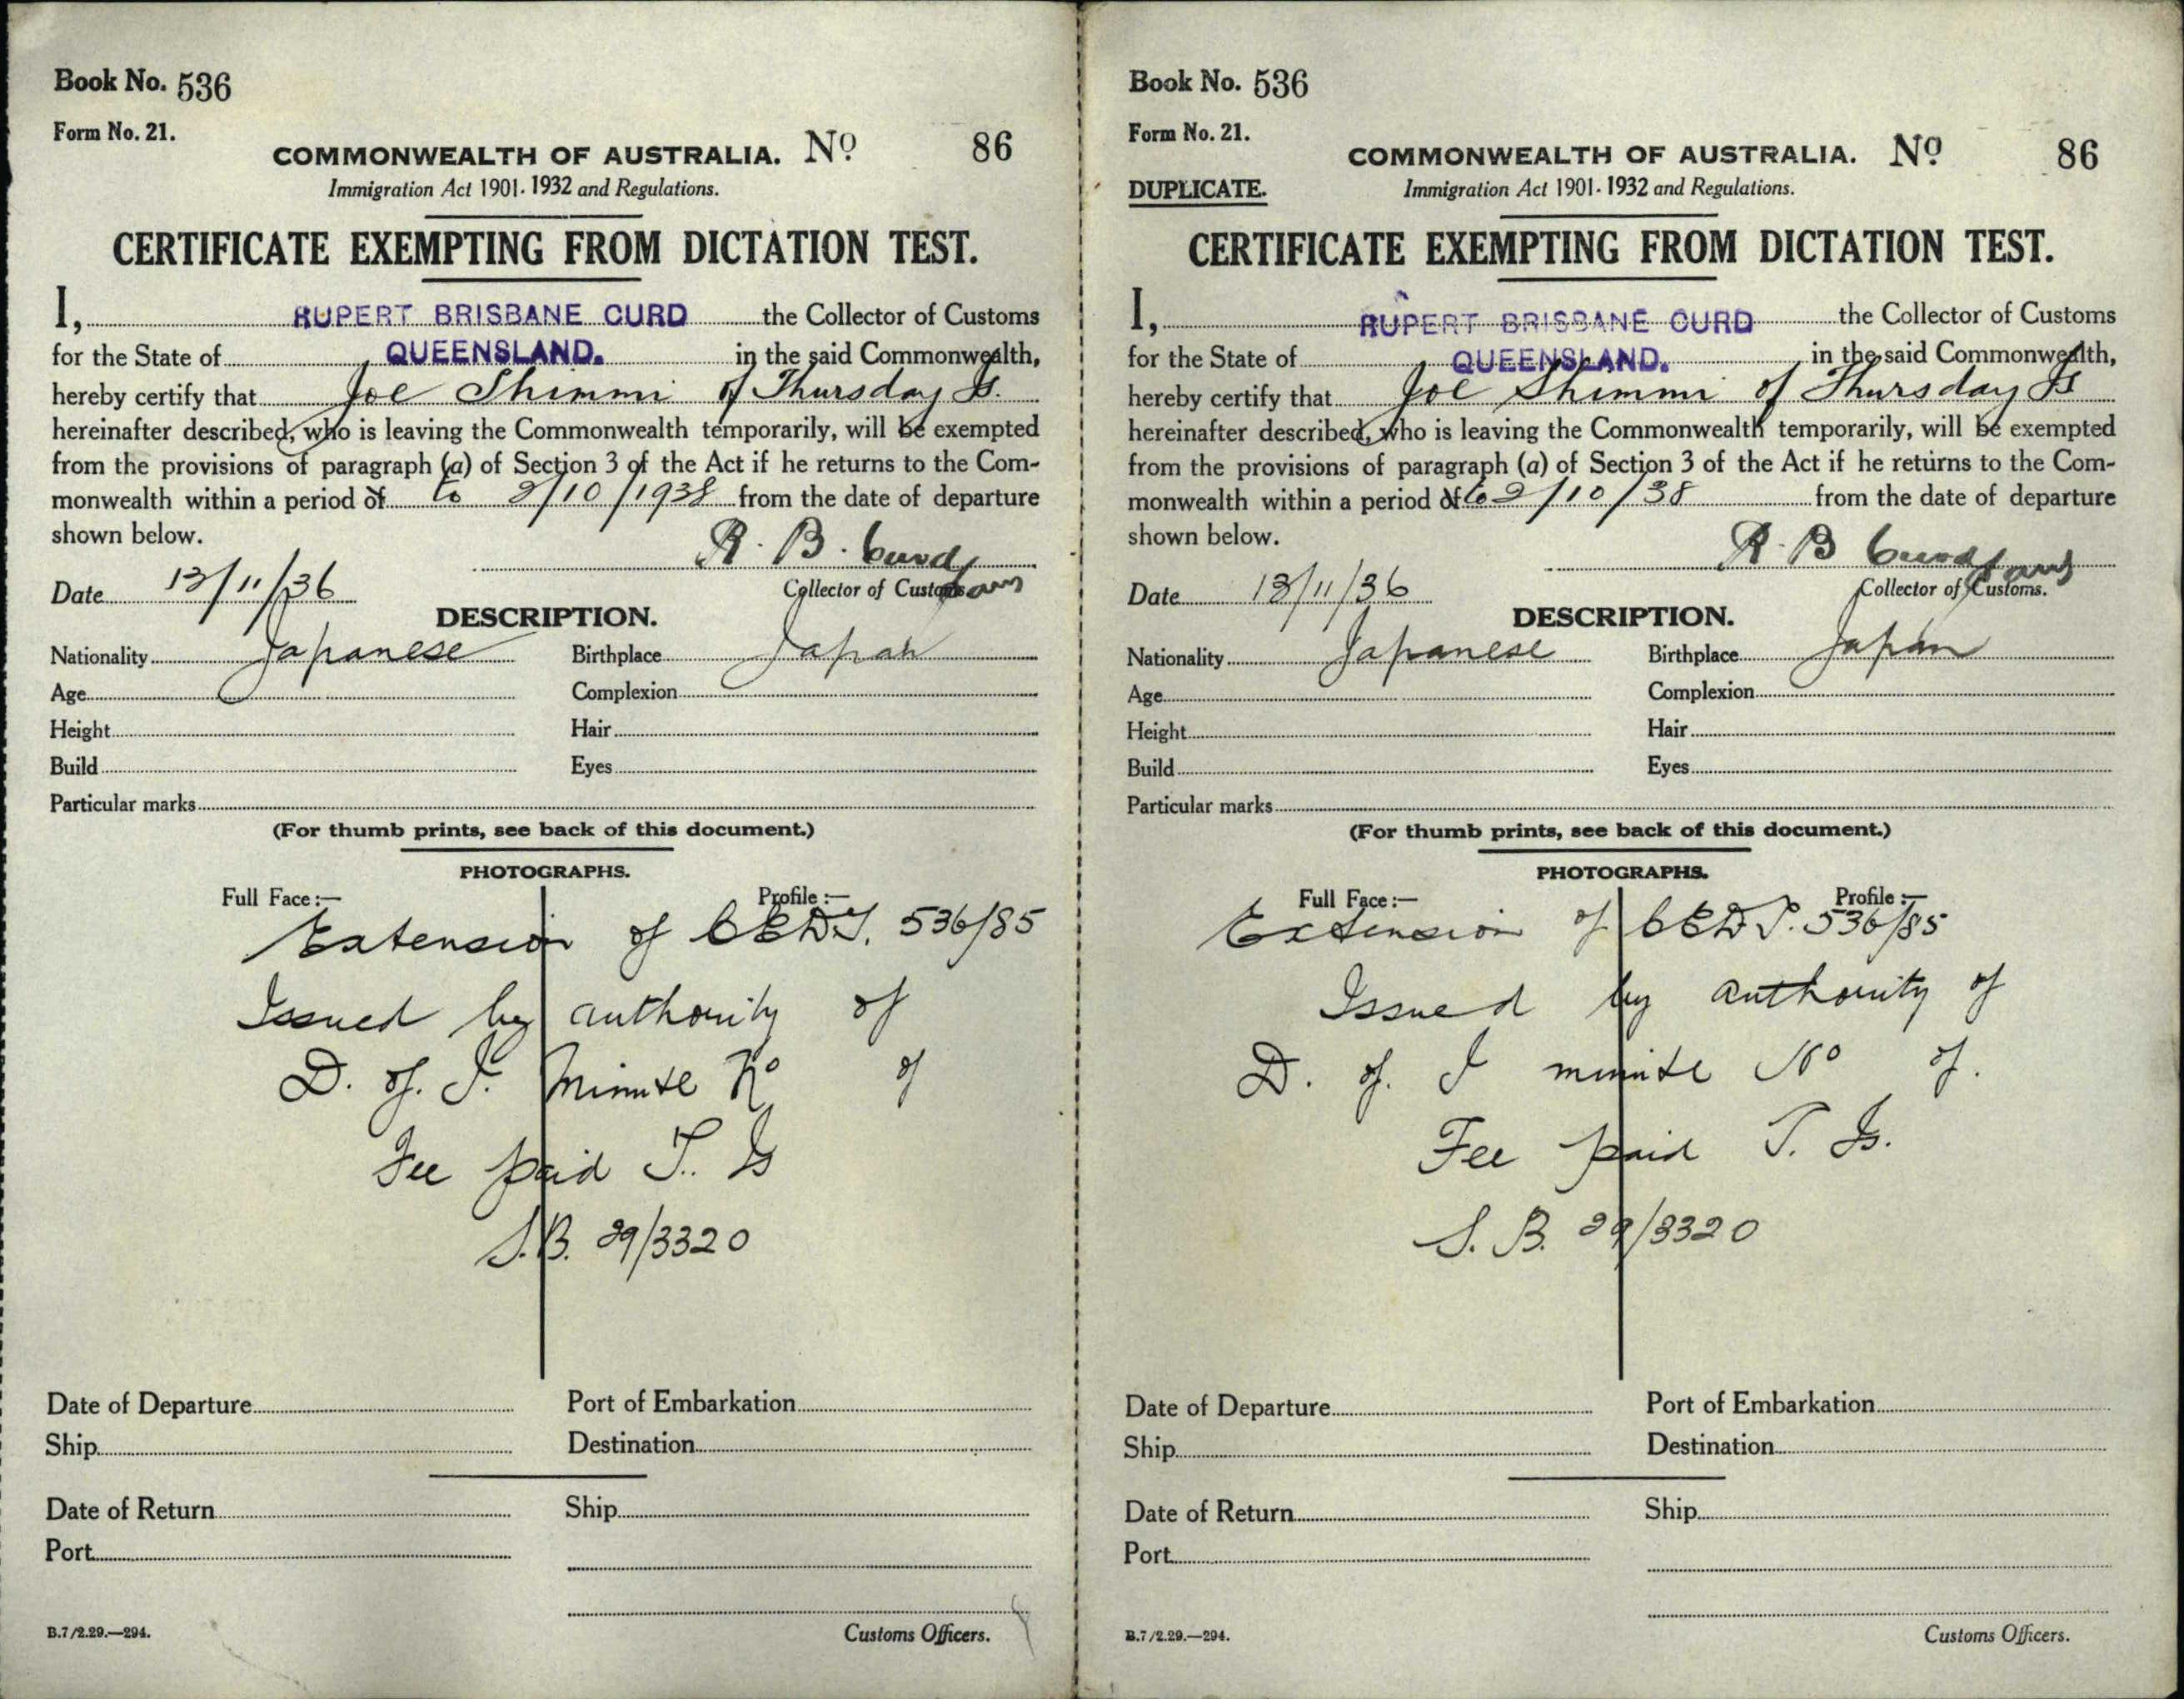 Book No. 536
Form No. 21.
COMMONWEALTH OF AUSTRALIA. No 86
Immigration Act 1901-1932 and Regulations.
CERTIFICATE EXEMPTING FROM DICTATION TEST.
I, RUPERT BRISBANE CURD the Collector of Customs
for the State of QUEENSLAND. in the said Commonwealth,
hereby certify that Joe Shimmi of Thursday Is.
hereinafter described, who is leaving the Commonwealth temporarily, will be exempted
from the provisions of paragraph (a) of Section 3 of the Act if he returns to the Com-
monwealth within a period of to 2/10/1938 from the date of departure
shown below.
R. B. Curd
Date 13/11/36 Collector of Customs
DESCRIPTION.
Nationality Japanese Birthplace Japan
Age Complexion
Height Hair
Build Eyes
Particular marks
(For thumb prints, see back of this document.)
PHOTOGRAPHS.
Full Face :— Profile :—
Extension of CEDT. 536/85
Issued by authority of
D. of. I. Minute No of
Fee paid T. Is
S.B. 29/3320
Date of Departure Port of Embarkation
Ship Destination
Date of Return Ship
Port
B.7/2.29.—294. Customs Officers.
Book No. 536
Form No. 21.
COMMONWEALTH OF AUSTRALIA. No 86
DUPLICATE. Immigration Act 1901-1932 and Regulations.
CERTIFICATE EXEMPTING FROM DICTATION TEST.
I, RUPERT BRISBANE CURD the Collector of Customs
for the State of QUEENSLAND. in the said Commonwealth,
hereby certify that Joe Shimmi of Thursday Is
hereinafter described, who is leaving the Commonwealth temporarily, will be exempted
from the provisions of paragraph (a) of Section 3 of the Act if he returns to the Com-
monwealth within a period of to 2/10/38 from the date of departure
shown below.
R. B Curd
Date 13/11/36 Collector of Customs.
DESCRIPTION.
Nationality Japanese Birthplace Japan
Age Complexion
Height Hair
Build Eyes
Particular marks
(For thumb prints, see back of this document.)
PHOTOGRAPHS.
Full Face :— Profile :—
Extension of CEDT. 536/85
Issued by authority of
D. of. I minute No of.
Fee paid T. Is.
S. B. 29/3320
Date of Departure Port of Embarkation
Ship Destination
Date of Return Ship
Port
B.7/2.29.—294. Customs Officers.